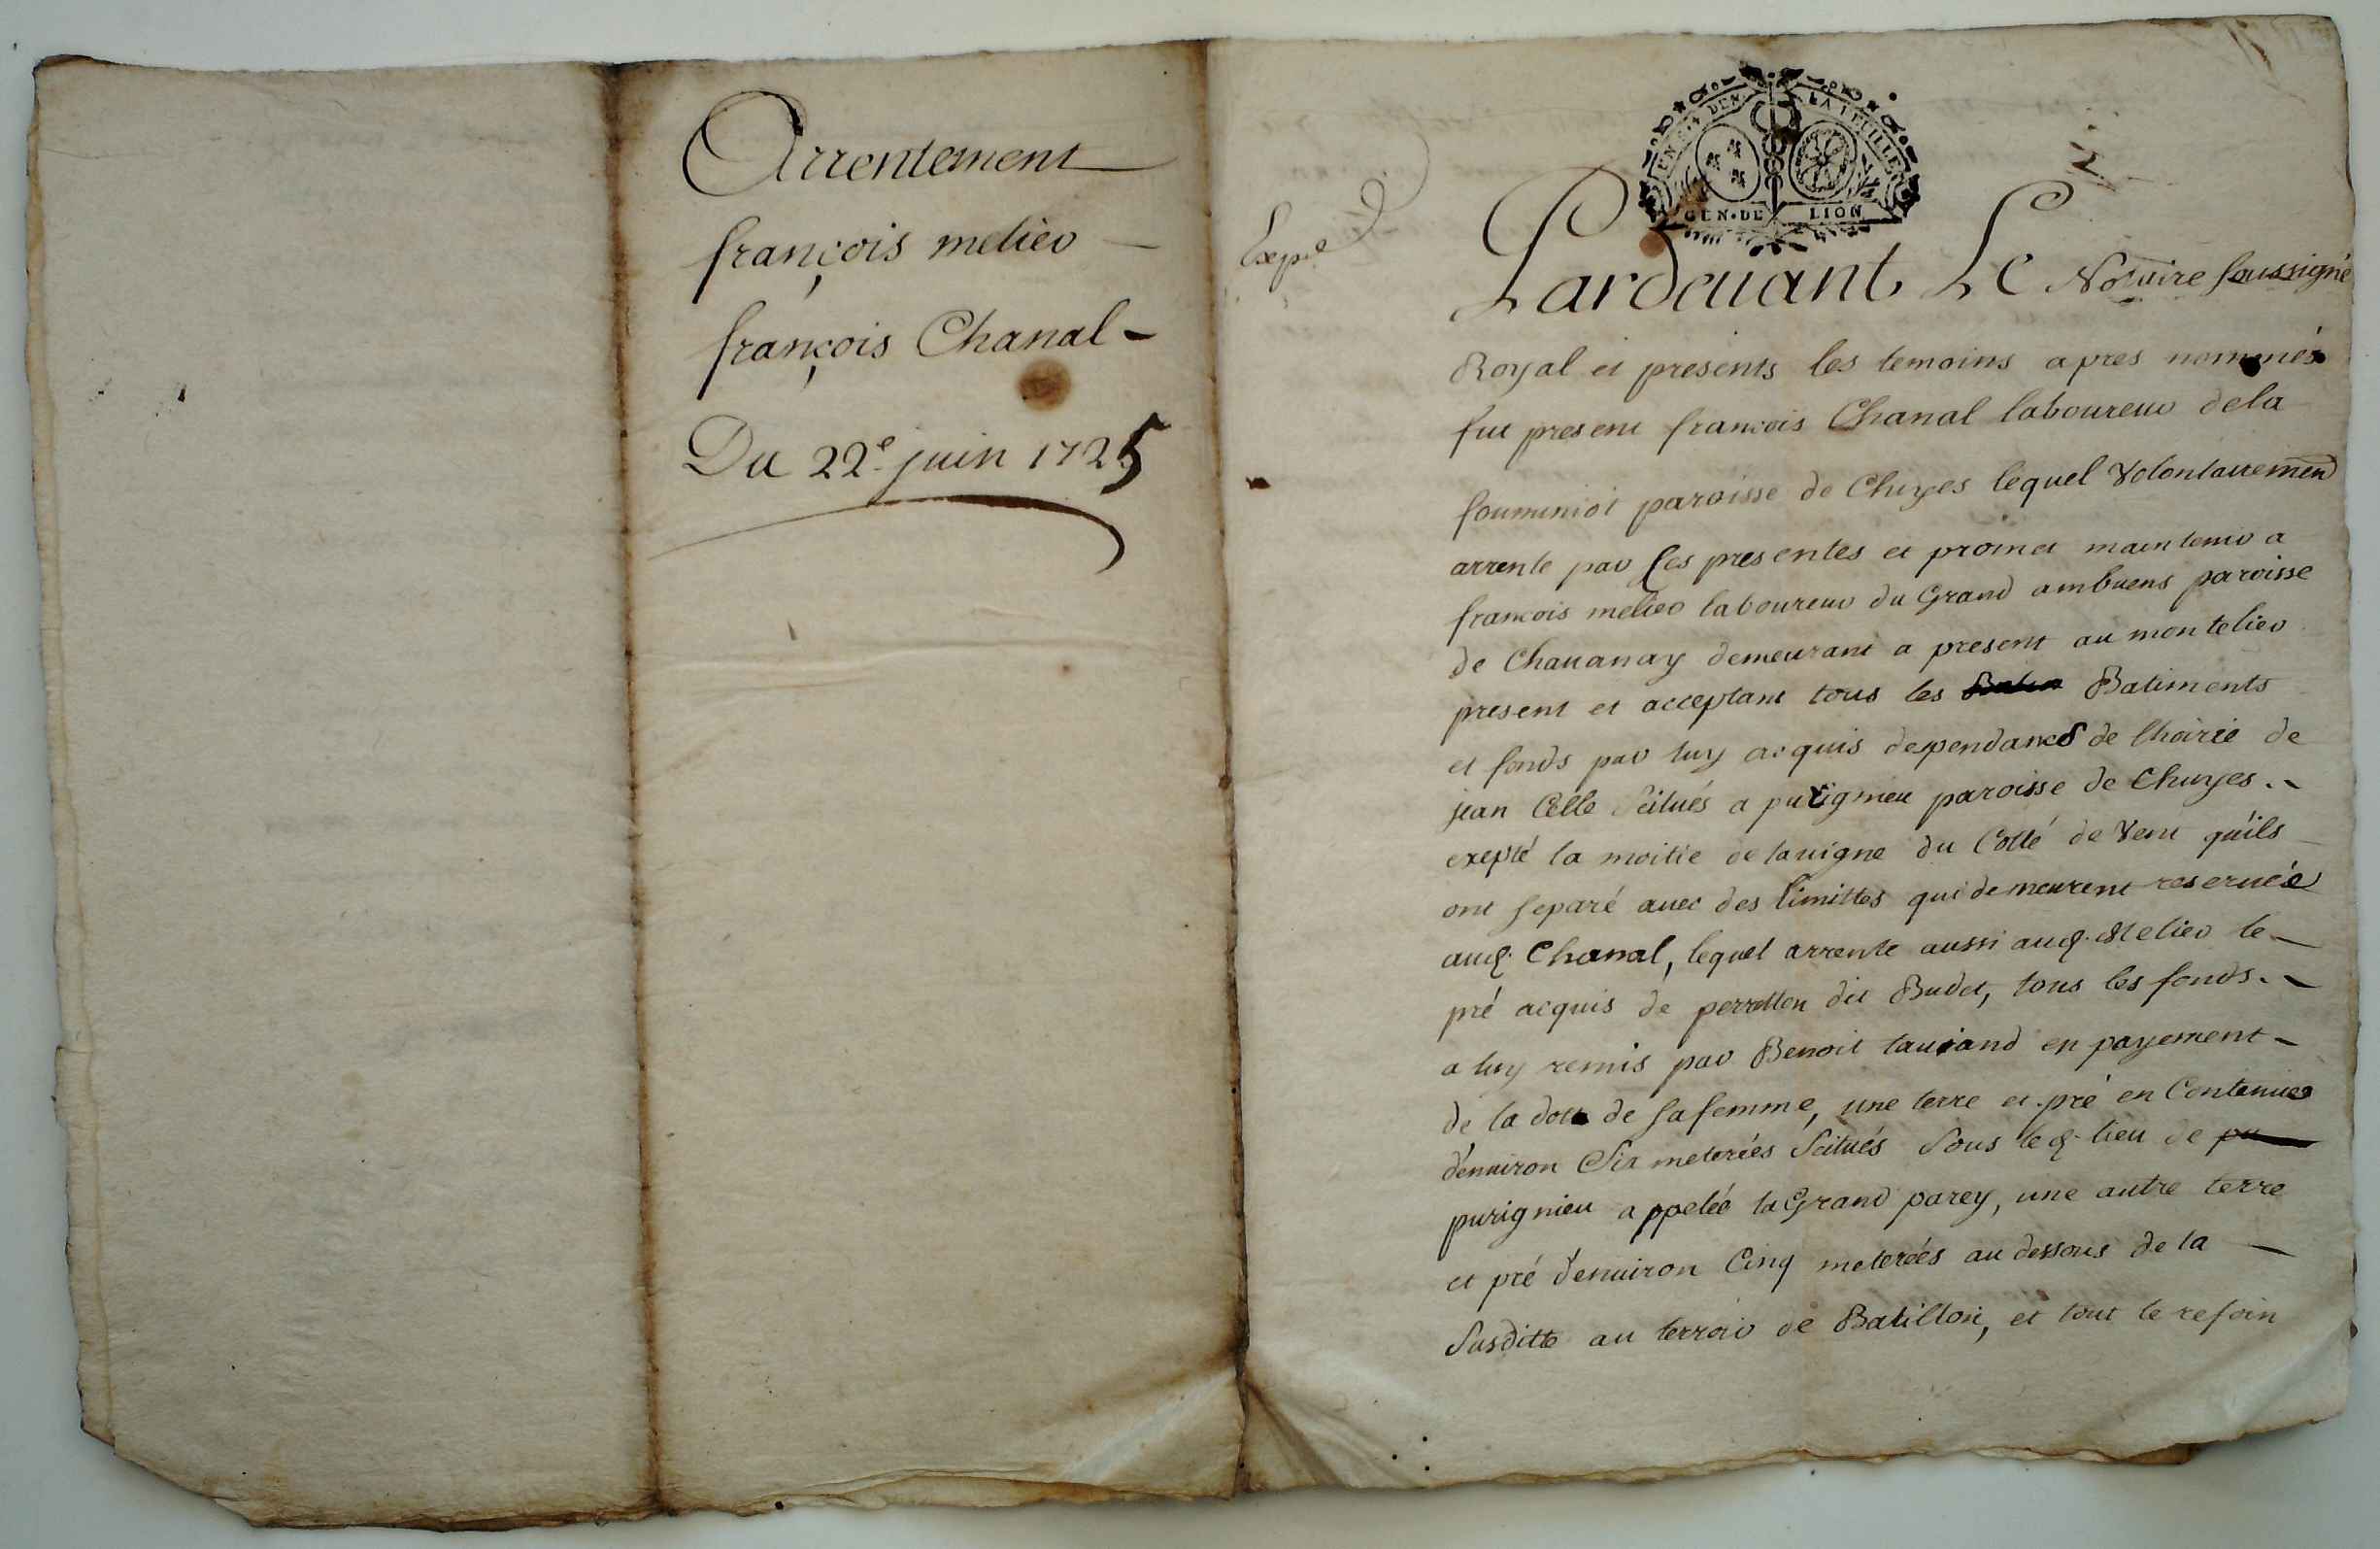 Arrentement
françois melier
françois Chanal
Du 22e juin 1725
Expé
GEN. DE LION
Pardeuant Le Notaire soussigné
Royal et presents les temoins apres nommés
fut present francois Chanal laboureur dela
paroisse de Chuyes lequel Volontairement
arrente par Ces presentes et promet maintenir a
francois melier laboureur du Grand ambuens paroisse
de Chauanay demeurant a present au montelier
present et acceptant tous les Batiments
et fonds par luy acquis dependants de lhoirie de
jean Celle Scitués a purignieu paroisse de Chuyes
exepté la moitie de lauigne du Cotté de Vent qu'ils
ont separé auec des limittes qui demeurent reseruée
aud. Chanal, lequel arrente aussi aud. Melier le
pré acquis de perretton dit Budet, tous les fonds
a luy remis par Benoit tauiand en payement
de la dott de sa femme, une terre et pré en Contenue
d'enuiron Six meterées Scitués Sous led. lieu de pu
purignieu appelée la Grand parey, une autre terre
et pré d'enuiron Cinq meterées au dessous de la
Susditte au terroir de Batillon, et tout le refoin